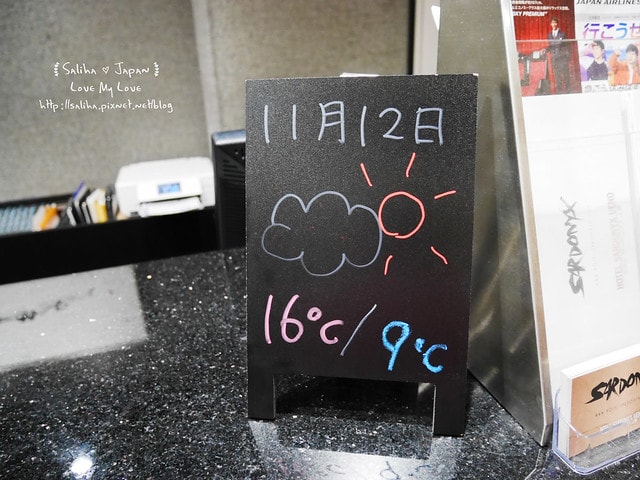 Saliha ♡ Japan
Love My Love
http://saliha.pixnet.net/blog
11月12日
16°c/9°c
SKY PREMIUM
JAPAN AIRLINES
行こうぜ
SARDONYX
SARDONY